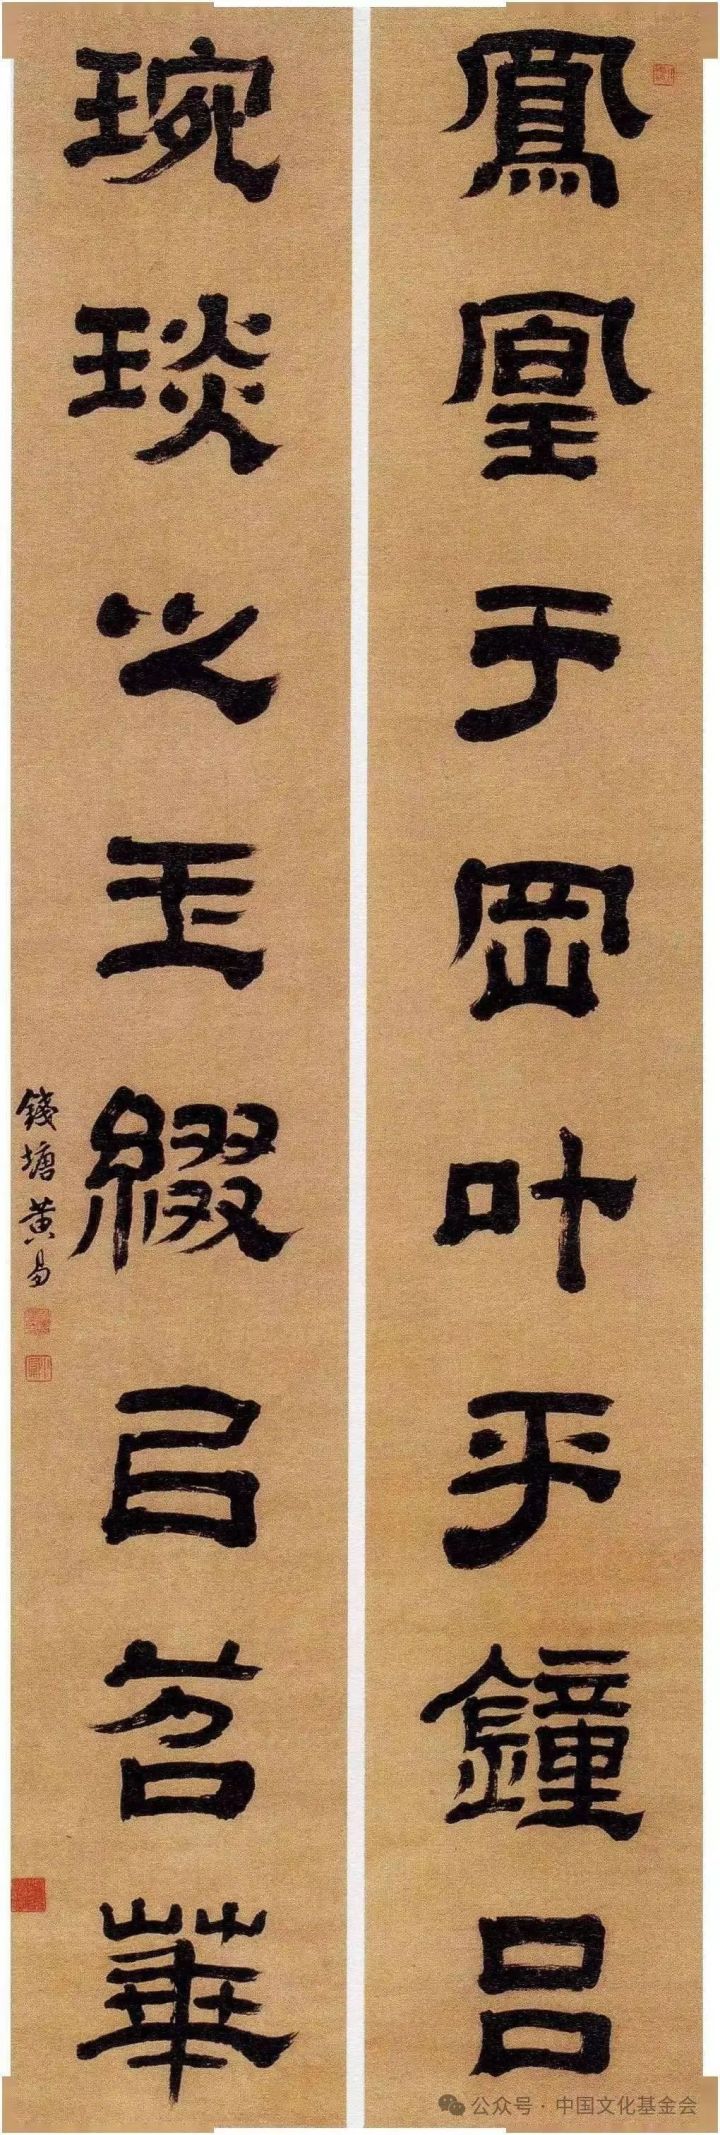 鳳凰于岡叶乎鐘呂
琬琰之玉綴以苕華
錢塘黃易
公众号·中国文化基金会